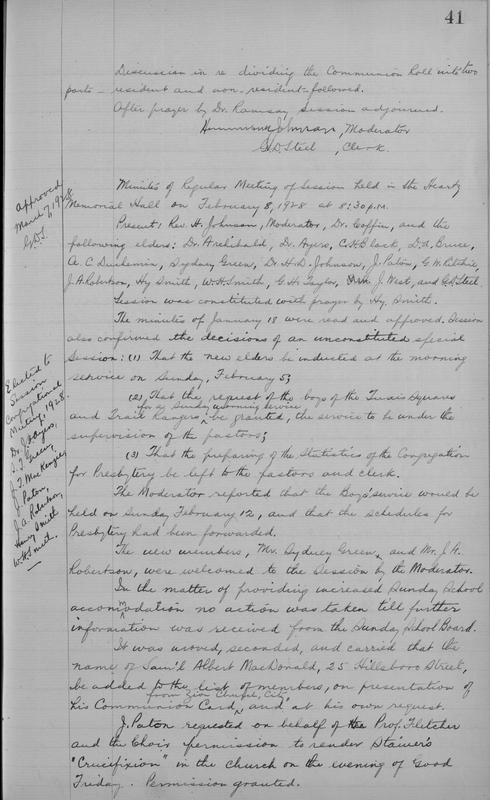 41
Discussion in re dividing the Communion Roll into two
parts - resident and non-resident - followed.
After prayer by Dr. Ramsay Session adjourned.
Johnson, Moderator
G.D. Steel, Clerk.
Approved
March 7, 1928
G.D.S.
Minutes of Regular Meeting of Session held in the Heartz
Memorial Hall on February 8, 1928 at 8:30 P.M.
Present: Rev. H. Johnson, Moderator, Dr. Coffin, and the
following elders: Dr. Archibald, Dr. Ayers, C.H. Black, D.A. Bruce,
A.C. Duchemin, Sydney Green, Dr. H.D. Johnson, J. Paton, G.W. Ritchie,
J.A. Robertson, Hy Smith, W.H. Smith, G.H. Taylor, J. West, and G.D. Steel.
Session was constituted with prayer by Hy. Smith.
The minutes of January 18 were read and approved. Session
also confirmed the decisions of an unconstituted special
Session: (1) That the new elders be inducted at the morning
service on Sunday, February 5;
(2) That the request of the boys of the Tuxis Squares
for a Sunday morning service
and Trail Rangers be granted, the service to be under the
supervision of the pastors;
(3) That the preparing of the Statistics of the Congregation
for Presbytery be left to the pastors and clerk.
The Moderator reported that the Boys' service would be
held on Sunday February 12, and that the schedules for
Presbytery had been forwarded.
The new members, Mr. Sydney Green, and Mr. J.A.
Robertson, were welcomed to the Session by the Moderator.
In the matter of providing increased Sunday School
accommodation no action was taken till further
information was received from the Sunday School Board.
It was moved, seconded, and carried that the
name of Sam'l Albert MacDonald, 25 Hillsboro Street,
be added to the list of members, on presentation of
from Zion Church, City,
his Communion Card, and at his own request.
J. Paton requested on behalf of the Prof. Fletcher
and the Choir permission to render Stainer's
"Crucifixion" in the Church on the evening of Good
Friday. Permission granted.
Elected to
Session
Congregational
Meeting, 1928.
Dr. J. Ayers,
S. Green,
J. F. MacKenzie,
J. Paton,
J.A. Robertson,
Henry Smith
W.H. Smith.